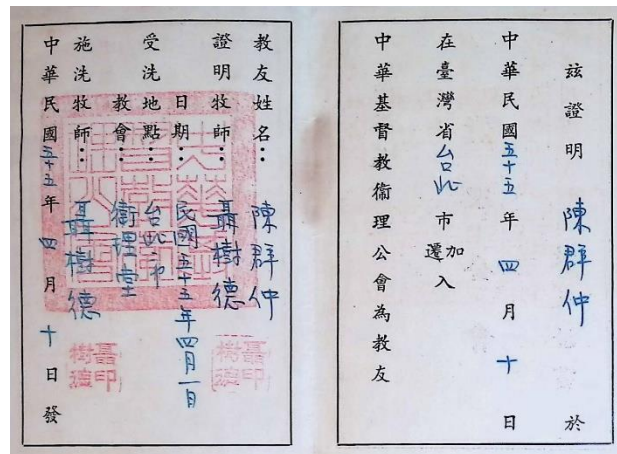 茲證明陳群仲於
中華民國五十五年四月十日
在臺灣省台北市加遷入
中華基督教衞理公會為教友
教友姓名:陳群仲
證明牧師:聶樹德
聶印樹德
日期:民國五十五年四月一日
受洗地點:台北市
教會:衛理堂
施洗牧師:聶樹德
聶印樹德
中華民國五十五年四月十日發